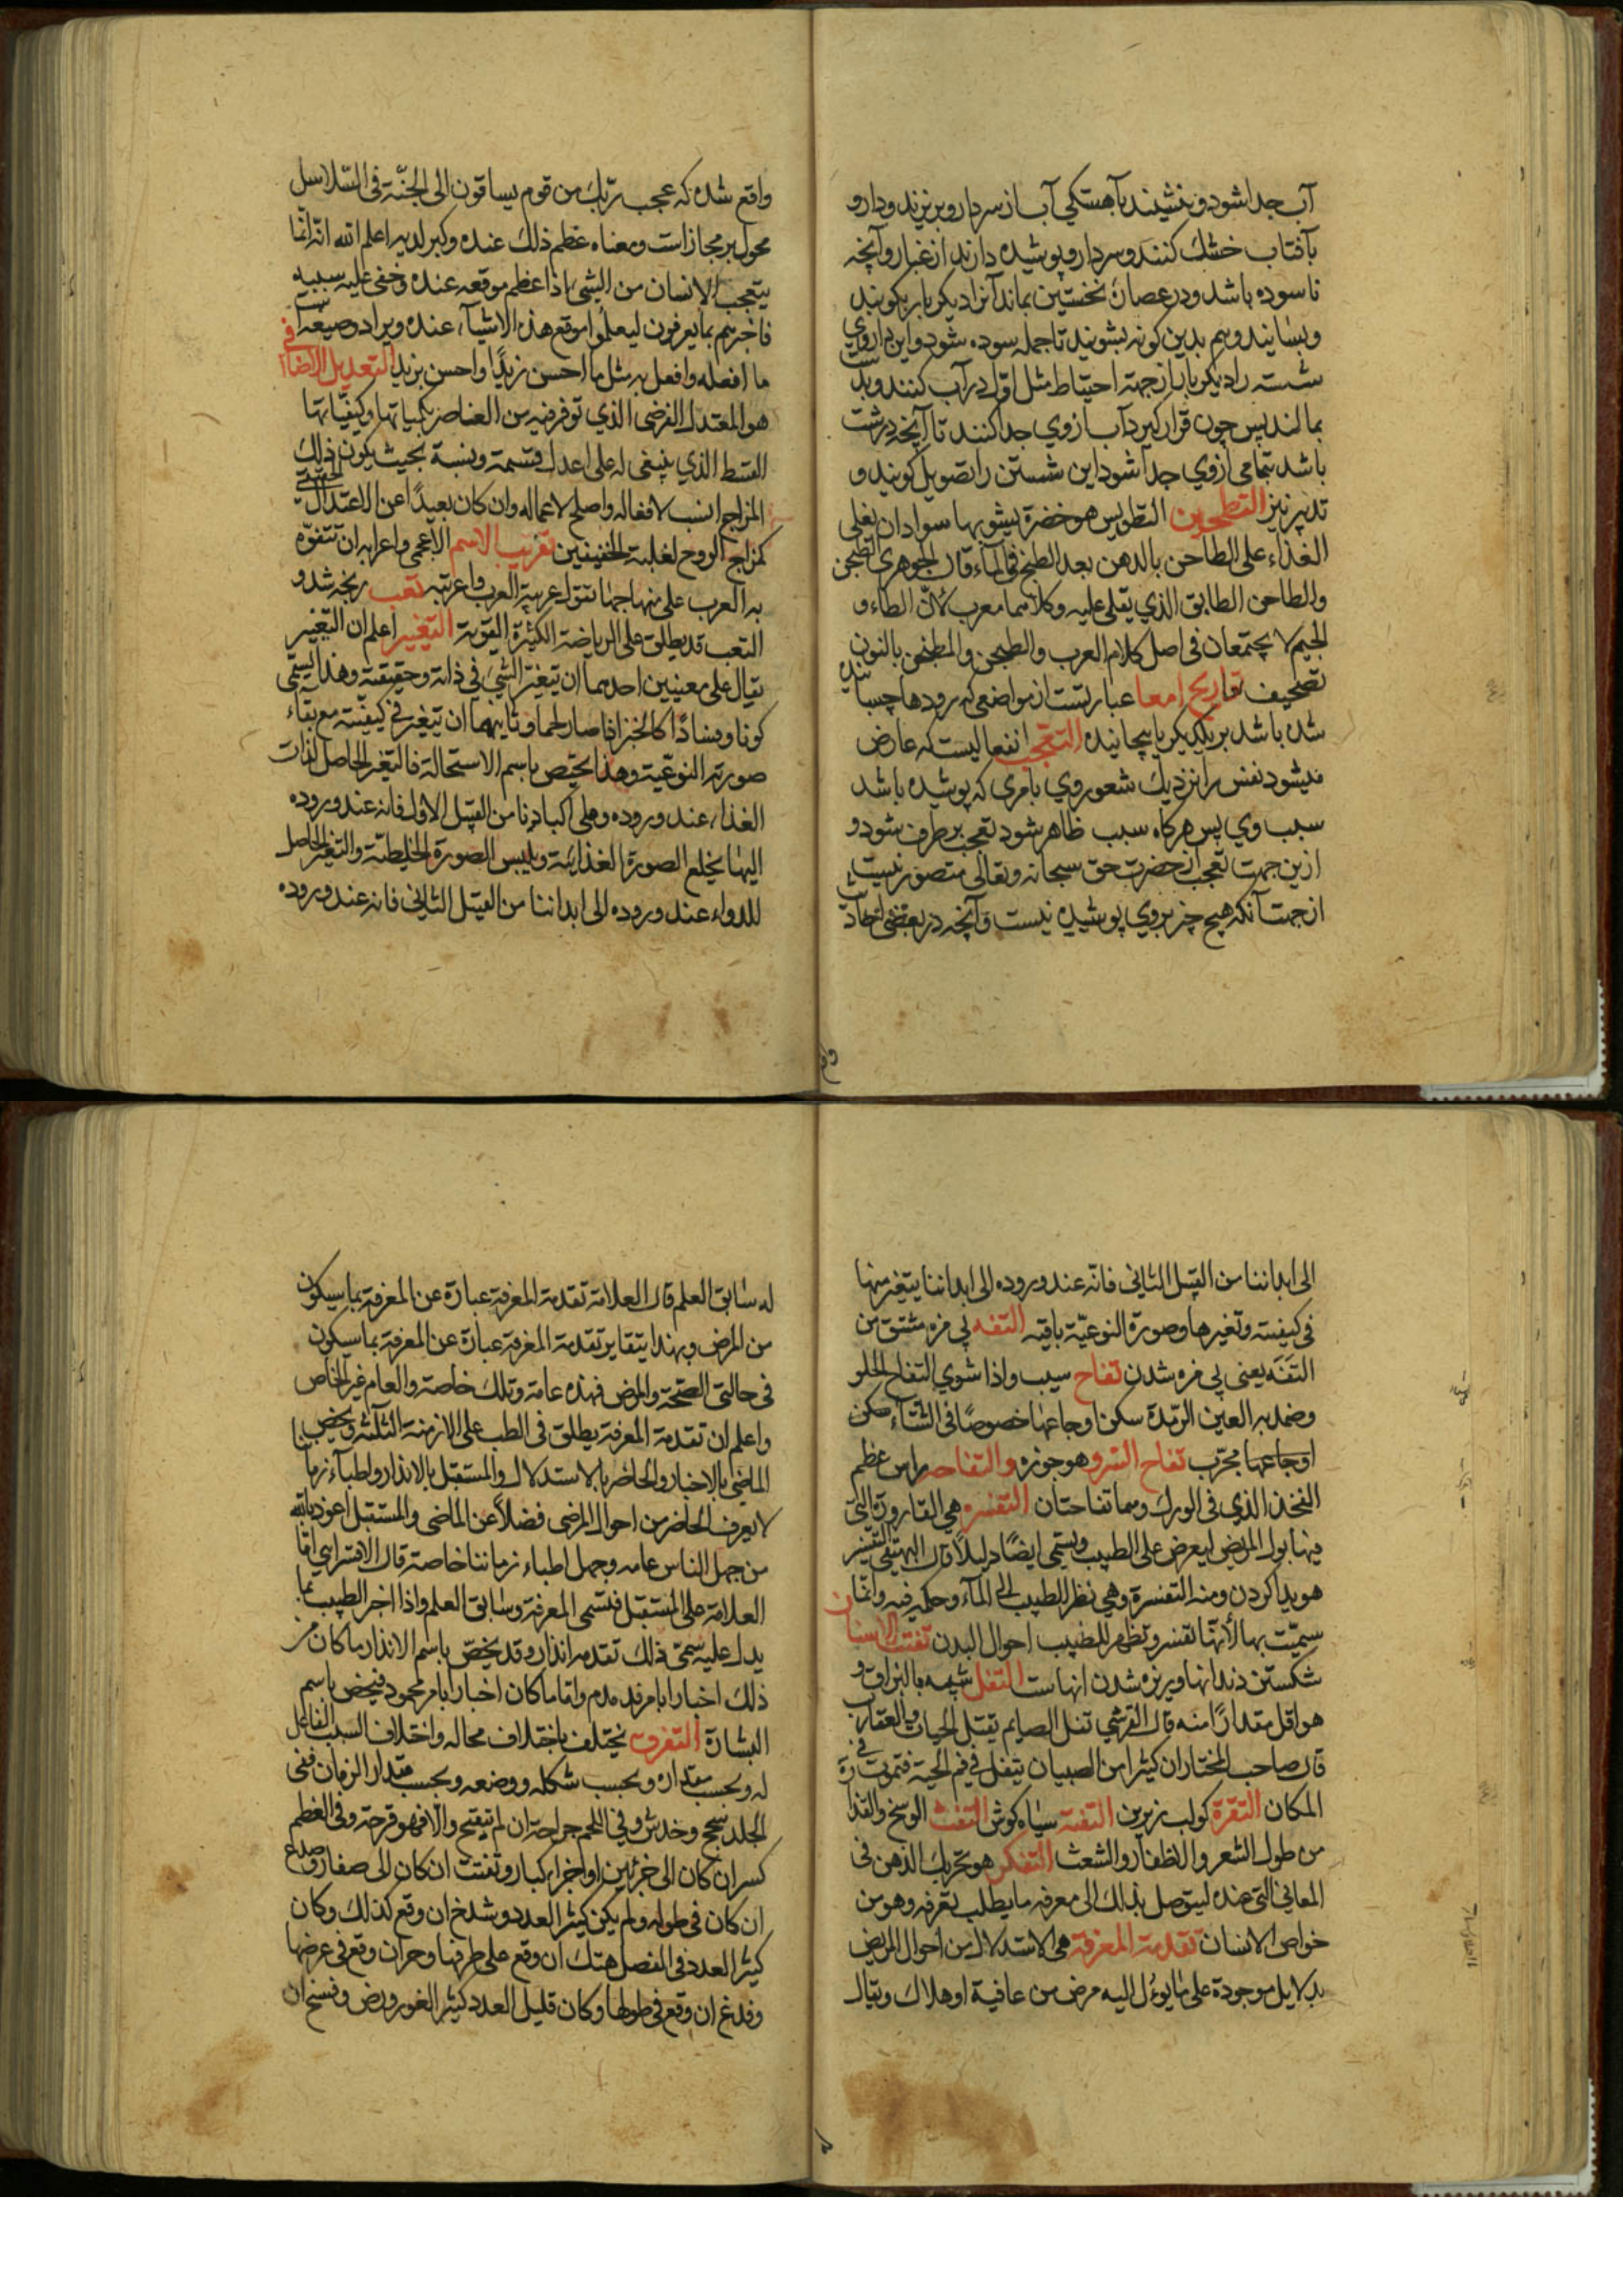 آب جدا شود و بنشیند بآهستکی آب از سر دارو بریزند و دارو
بآفتاب خشک کنند و سر دارو پوشیده دارند از غبار و آنچه
ناسوده باشد و در عصارۀ نخستین بماند آنرا دیکر بار بکوبند
و بسایند و هم بدین کونه بشویند تا جمله سوده شود و این داروی
شسته را دیکر بار از جهته احتیاط مثل اول در آب کنند و بدست
بمالند پس چون قرار کیرد آب از وی جدا کنند تا آنچه درشت
باشد بتمامی ازوی جدا شود این شستن را تصویل کویند و
تدبیر نیز التطجین التطویس هو خضرة یشوبها سواد ان یغلی
الغذاء علی الطاجن بالدهن بعد الطبخ فی الماء قال الجوهری الطیجن
والطاجن الطابق الذی یقلی علیه وکلاهما معرب لانّ الطاء و
الجیم لا یجتمعان فی اصل کلام العرب والطیجن والمطنجن بالنون
تصحیف تعاریج امعا عبارتست از مواضعی که رودها چسبانیده
شده باشد بر یکدیکر یا پیچانیده التعجب انفعالیست که عارض
میشود نفس را نزدیک شعور وی بامری که پوشیده باشد
سبب وی پس هرکاه سبب ظاهر شود تعجب برطرف شود و
ازین جهت تعجب از حضرت حق سبحانه و تعالی متصور نیست
از جهت آنکه هیچ چیز بروی پوشیده نیست و آنچه در بعضی احادیث
واقع شده که عجب ربّک من قوم یساقون الی الجنّة فی السّلاسل
محمول بر مجاز است ومعناه عظم ذلک عنده وکبر لدیه اعلم الله انّه انّما
یتعجب الانسان من الشیء اذا عظم موقعه عنده وخفی علیه سببه
فاخبرهم بما یعرفون لیعلموا موقع هذه الاشیاء عنده ویراد وصیغته
ما افعله وافعل به مثل ما احسن زیدًا واحسن بزید التعدیل الاضافی
هو المعتدل الفرضی الذی توفر فیه من العناصر بکمیاتها وکیفیّاتها
القسط الذی ینبغی له علی اعدل قسمة ونسبة بحیث یکون ذلک
المزاج انسب لافعاله واصلح لاعماله وان کان بعیدًا عن الاعتدال الحقیقی
کمزاج الروح لغلبة الخفیفین تعریب الاسم الاعجمی واعرابه ان تتفوّه
به العرب علی منهاجها تقول عربته العرب واعربته تعب رنجه شد و
التعب قد یطلق علی الریاضة الکثیرة القویة التغییر اعلم ان التغییر
یقال علی معنیین احدهما ان یتغیر الشیء فی ذاته وحقیقته وهذا یسمّی
کونا وفسادًا کالخبز اذا صار لحما وثانیهما ان یتغیر فی کیفیته مع بقاء
صورته النوعیة وهذا یختص باسم الاستحالة فالتغیر الحاصل لذات
الغذاء عند وروده وعلی اکبادنا من القبیل الاول فانه عند وروده
الیها یخلع الصورة الغذائیة ویلبس الصورة الخلیطیة والتغیر الحاصل
للدواء عند وروده الی ابداننا من القبیل الثانی فانه عند وروده
الی ابداننا من القبیل الثانی فانّه عند وروده الی ابداننا یتغیر منها
فی کیفیته وتغیرها وصورة النوعیّة باقیه التفه بی مزه مشتق من
التفَه یعنی بی مزه شدن تفاح سیب واذا شوی التفاح الحلو
وضمد به العین الرّمدة سکن اوجاعها خصوصًا فی الشتاء سکن
اوجاعها مجرّب تفاح السرو هو جوزه والتفاحه راس عظم
الفخذ الذی فی الورک وهما تفاحتان التفسره هی القارورة التی
فیها بول المریض لیعرض علی الطبیب ویسمی ایضًا دلیلاً قال البیهقی التفسیر
هویدا کردن ومنه التفسرة وهی نظر الطبیب الی الماء وحکمه فیه وانّما
سمیّت بها لأنهّا تفسر وتظهر للطبیب احوال البدن تفتت الاسنان
شکستن دندانها و ریزه شدن انهاست التفل شبیه بالبزاق و
هو اقل مقدارًا منه قال القرشی تفل الصایم یقتل الحیات والعقارب
قال صاحب المختار ان کثیرا من الصبیان یتفل فی فم الحیة فتموت فی
المکان التقرة کولب زیرین التفة سیاه کوش التفث الوسخ والقذارة
من طول الشعر والاظفار والشعث التفکر هو تحریک الذهن فی
المعانی التی عنده لیتوصل بذلک الی معرفه ما یطلب تعرفه وهو من
خواص الانسان تقدمة المعرفة هی الاستدلال من احوال المریض
بدلایل موجودة علی ما یوءل الیه مرض من عافیة او هلاک ویقال
له سابق العلم قال العلامة تقدمة المعرفة عبارة عن المعرفة بما سیکون
من المرض وبهذا یتغایر تقدمة المعرفة عبارة عن المعرفة بما سیکون
فی حالتی الصّحة والمرض فهذه عامة وتلک خاصة والعام غیر الخاص
واعلم ان تقدمة المعرفة یطلق فی الطب علی الازمنة الثلثه ویخص
الماضی بالاخبار والحاضر بالاستدلال والمستقبل بالانذار واطباء زماننا
لا یعرف الحاضر من احوال المرضی فضلاً عن الماضی والمستقبل اعوذ بالله
من جهل الناس عامه وجهل اطباء زماننا خاصة قال الاقسرایی امّا
العلامة علی المستقبل فتسمی المعرفة وسابق العلم واذا اخبر الطبیب بما
یدل علیه سمّی ذلک تقدمه انذار وقد یخصّ باسم الانذار ما کان من
ذلک اخبارا بامر مذموم واما ما کان اخبارا بامر محمود فیخص باسم
البشارة التفرق یختلف باختلاف محاله واختلاف السبب الفاعل
له وبحسب مقداره وبحسب شکله ووضعه وبحسب مقدار الزمان ففی
الجلد سحج وخدش وفی اللحم جراحة ان لم یتقیح والّا فهو قرحة وفی العظم
کسر ان کان الی جزئین او اجزاء کبار وتفتت ان کان الی صغار وصدع
ان کان فی طوله ولم یکن کثیر العدد وشدخ ان وقع کذلک وکان
کثیر العدد فی العضل هتک ان وقع علی طرفها وحز ان وقع فی عرضها
وفدغ ان وقع فی طولها وکان قلیل العدد کثیر الغور ورض وفسخ ان